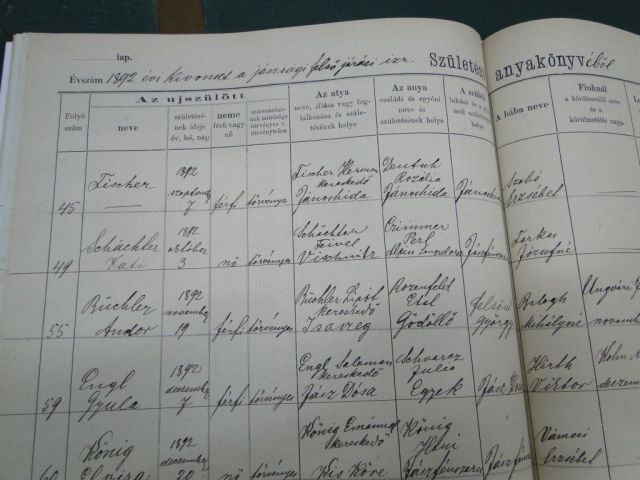 lap.
Születési anyakönyvéből.
Évszám 1892 évi kivonat a jászsági felső járási izr.
Az ujszülött
Folyó szám
neve
születésének ideje év, hó, nap
neme férfi vagy nő
származásának minősége törvényes v. törvénytelen
Az atya neve, állása vagy foglalkozása és születésének helye
Az anya családi és egyéni neve és születésének helye
A szülők lakása és
A bába neve
Fiuknál a körülmetélő neve és a körülmetélés napja
45 Fischer — 1892 szeptember 7 férfi törvényes Fischer Herman kereskedő Jánoshida Deutsch Rozália Jánoshida Jánoshida Szabó Erzsébet
49 Schächter Kati 1892 október 3 nő törvényes Schächter Feivel Vischnitz Czimmer Perl Farkas Józsefné
55 Büchler Andor 1892 november 19 férfi törvényes Büchler Lipót kereskedő Isaszeg Rozenfeld Etel Gödöllő Felsőszt györgy Balogh Mihályné Ungvári november
59 Engl Gyula 1892 deczember 7 férfi törvényes Engl Salamon kereskedő Jász Dósa Schvarcz Julia Egyek Jász Dósa Hirth Viktor Kohn deczem
60 König Elvira 1892 deczember 20 nő törvényes König Emánuel kereskedő Kis Köre König Hani Jászfénszaru Jászfénsz Vámosi Erzsébet